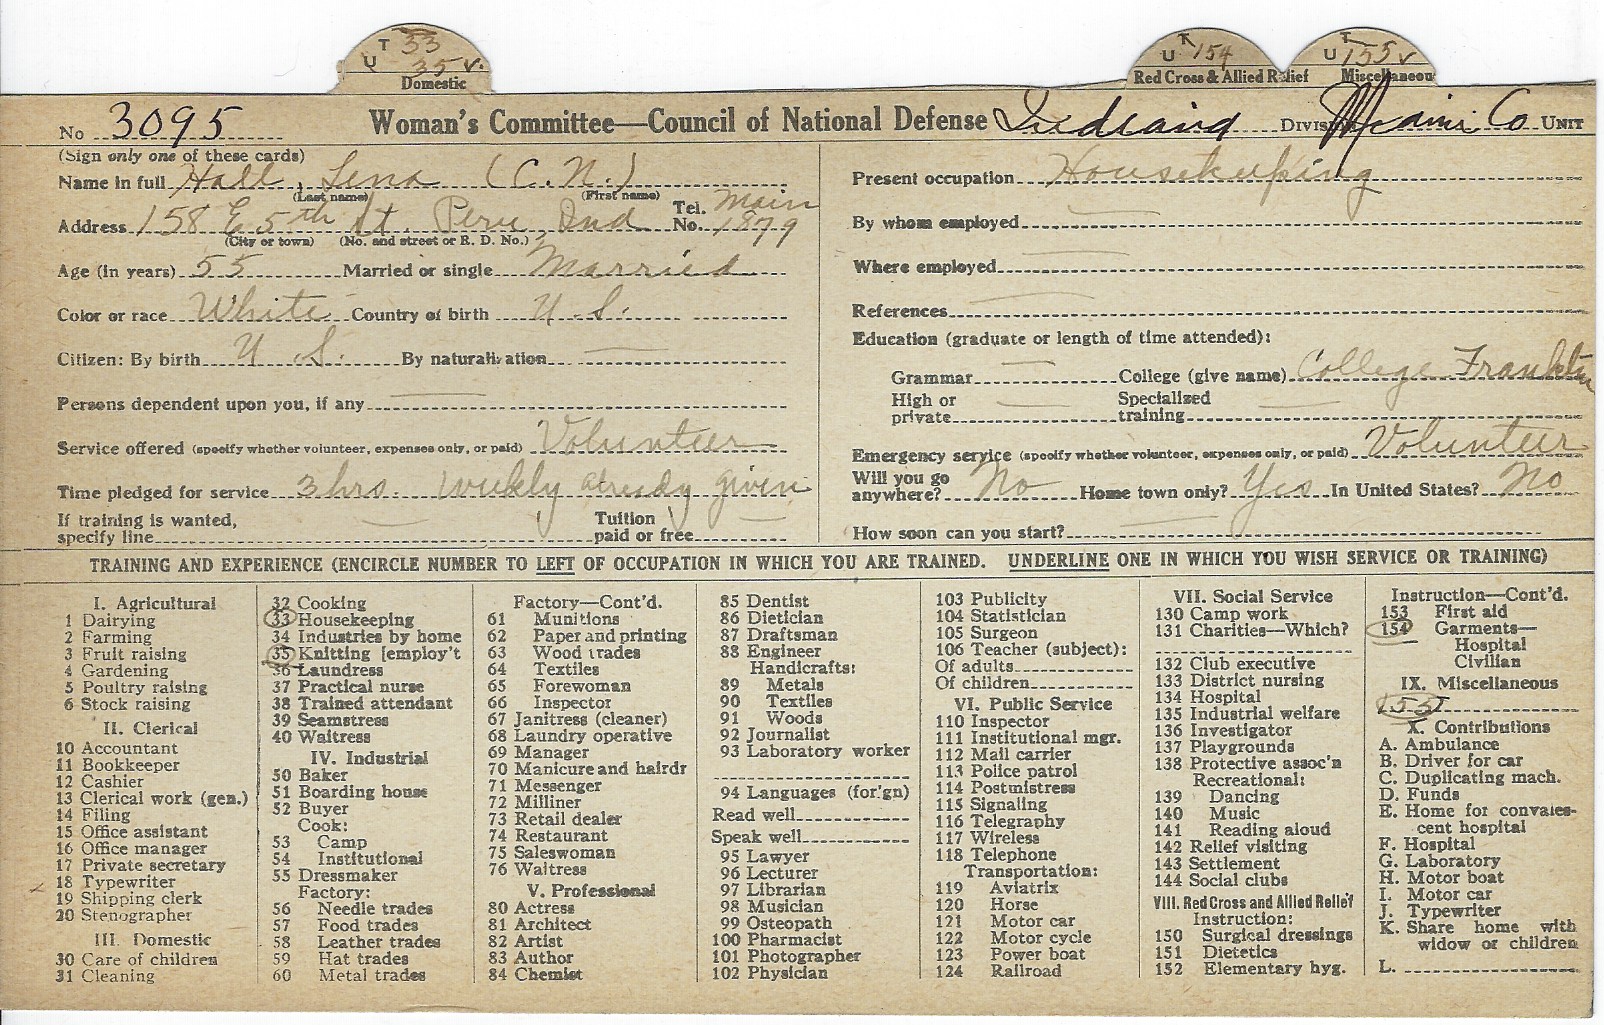 U T 33
35 v.
Domestic
U T 154
Red Cross & Allied Relief
U T 155 v
Miscellaneous
No 3095
Woman's Committee—Council of National Defense Indiana Division Miami Co Unit
(Sign only one of these cards)
Name in full Hall, Lena (C. N.)
(Last name) (First name)
Address 158 E 5th St. Peru, Ind Tel. No. Main 1879
(City or town) (No. and street or R. D. No.)
Age (in years) 55 Married or single Married
Color or race White Country of birth U. S.
Citizen: By birth U. S. By naturalization —
Persons dependent upon you, if any —
Service offered (specify whether volunteer, expenses only, or paid) Volunteer
Time pledged for service 3 hrs. weekly already given
If training is wanted, specify line — Tuition paid or free —
Present occupation Housekeeping
By whom employed —
Where employed —
References —
Education (graduate or length of time attended):
Grammar — College (give name) College Franklin
High or private — Specialized training —
Emergency service (specify whether volunteer, expenses only, or paid) Volunteer
Will you go anywhere? No Home town only? Yes In United States? No
How soon can you start? —
TRAINING AND EXPERIENCE (ENCIRCLE NUMBER TO LEFT OF OCCUPATION IN WHICH YOU ARE TRAINED. UNDERLINE ONE IN WHICH YOU WISH SERVICE OR TRAINING)
I. Agricultural
1 Dairying
2 Farming
3 Fruit raising
4 Gardening
5 Poultry raising
6 Stock raising
II. Clerical
10 Accountant
11 Bookkeeper
12 Cashier
13 Clerical work (gen.)
14 Filing
15 Office assistant
16 Office manager
17 Private secretary
18 Typewriter
19 Shipping clerk
20 Stenographer
III. Domestic
30 Care of children
31 Cleaning
32 Cooking
33 Housekeeping
34 Industries by home
35 Knitting [employ't
36 Laundress
37 Practical nurse
38 Trained attendant
39 Seamstress
40 Waitress
IV. Industrial
50 Baker
51 Boarding house
52 Buyer
Cook:
53 Camp
54 Institutional
55 Dressmaker
Factory:
56 Needle trades
57 Food trades
58 Leather trades
59 Hat trades
60 Metal trades
Factory—Cont'd.
61 Munitions
62 Paper and printing
63 Wood trades
64 Textiles
65 Forewoman
66 Inspector
67 Janitress (cleaner)
68 Laundry operative
69 Manager
70 Manicure and hairdr
71 Messenger
72 Milliner
73 Retail dealer
74 Restaurant
75 Saleswoman
76 Waitress
V. Professional
80 Actress
81 Architect
82 Artist
83 Author
84 Chemist
85 Dentist
86 Dietician
87 Draftsman
88 Engineer
Handicrafts:
89 Metals
90 Textiles
91 Woods
92 Journalist
93 Laboratory worker
94 Languages (for'gn)
Read well
Speak well
95 Lawyer
96 Lecturer
97 Librarian
98 Musician
99 Osteopath
100 Pharmacist
101 Photographer
102 Physician
103 Publicity
104 Statistician
105 Surgeon
106 Teacher (subject):
Of adults
Of children
VI. Public Service
110 Inspector
111 Institutional mgr.
112 Mail carrier
113 Police patrol
114 Postmistress
115 Signaling
116 Telegraphy
117 Wireless
118 Telephone
Transportation:
119 Aviatrix
120 Horse
121 Motor car
122 Motor cycle
123 Power boat
124 Railroad
VII. Social Service
130 Camp work
131 Charities—Which?
132 Club executive
133 District nursing
134 Hospital
135 Industrial welfare
136 Investigator
137 Playgrounds
138 Protective assoc'n
Recreational:
139 Dancing
140 Music
141 Reading aloud
142 Relief visiting
143 Settlement
144 Social clubs
VIII. Red Cross and Allied Relief
Instruction:
150 Surgical dressings
151 Dietetics
152 Elementary hyg.
Instruction—Cont'd.
153 First aid
154 Garments—
Hospital
Civilian
IX. Miscellaneous
155
X. Contributions
A. Ambulance
B. Driver for car
C. Duplicating mach.
D. Funds
E. Home for convales-
cent hospital
F. Hospital
G. Laboratory
H. Motor boat
I. Motor car
J. Typewriter
K. Share home with
widow or children
L.